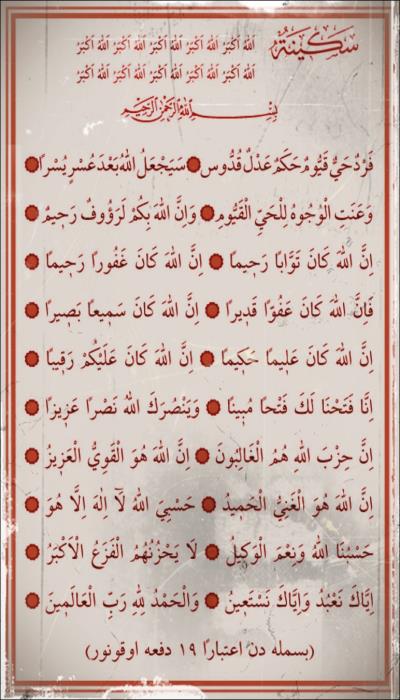 سَكِينَةْ
اَللهُ اَكْبَرْ اَللهُ اَكْبَرْ اَللهُ اَكْبَرْ اَللهُ اَكْبَرْ اَللهُ اَكْبَرْ
اَللهُ اَكْبَرْ اَللهُ اَكْبَرْ اَللهُ اَكْبَرْ اَللهُ اَكْبَرْ اَللهُ اَكْبَرْ
بِسْمِ اللهِ الرَّحْمٰنِ الرَّحِيمِ
فَرْدٌ حَىٌّ قَيُّومٌ حَكَمٌ عَدْلٌ قُدُّوسٌ ● سَيَجْعَلُ اللهُ بَعْدَ عُسْرٍ يُسْرًا ●
وَعَنَتِ الْوُجُوهُ لِلْحَىِّ الْقَيُّومِ ● وَاِنَّ اللهَ بِكُمْ لَرَؤُوفٌ رَحِيمٌ ●
اِنَّ اللهَ كَانَ تَوَّابًا رَحِيمًا ● اِنَّ اللهَ كَانَ غَفُورًا رَحِيمًا ●
فَاِنَّ اللهَ كَانَ عَفُوًّا قَدِيرًا ● اِنَّ اللهَ كَانَ سَمِيعًا بَصِيرًا ●
اِنَّ اللهَ كَانَ عَلِيمًا حَكِيمًا ● اِنَّ اللهَ كَانَ عَلَيْكُمْ رَقِيبًا ●
اِنَّا فَتَحْنَا لَكَ فَتْحًا مُبِينًا ● وَيَنْصُرَكَ اللهُ نَصْرًا عَزِيزًا ●
اِنَّ حِزْبَ اللهِ هُمُ الْغَالِبُونَ ● اِنَّ اللهَ هُوَ الْقَوِىُّ الْعَزِيزُ ●
اِنَّ اللهَ هُوَ الْغَنِىُّ الْحَمِيدُ ● حَسْبِىَ اللهُ لَآ اِلٰهَ اِلَّا هُوَ ●
حَسْبُنَا اللهُ وَنِعْمَ الْوَكِيلُ ● لَا يَحْزُنُهُمُ الْفَزَعُ الْاَكْبَرُ ●
اِيَّاكَ نَعْبُدُ وَاِيَّاكَ نَسْتَعِينُ ● وَالْحَمْدُ لِلّٰهِ رَبِّ الْعَالَمِينَ ●
(بسمله دن اعتبارًا ١٩ دفعه اوقونور)